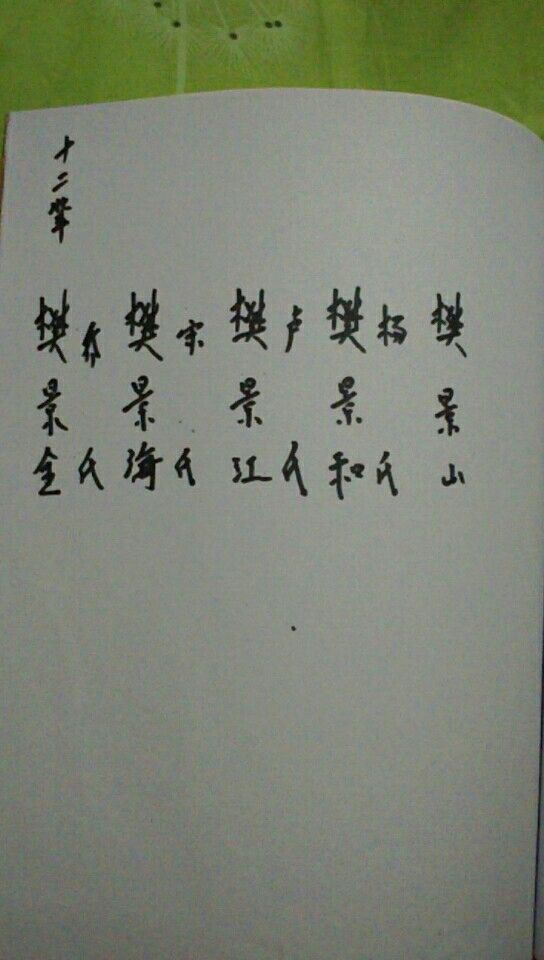 十二辈
樊景金
氏
樊景海
宋氏
樊景江
卢氏
樊景和
杨氏
樊景山